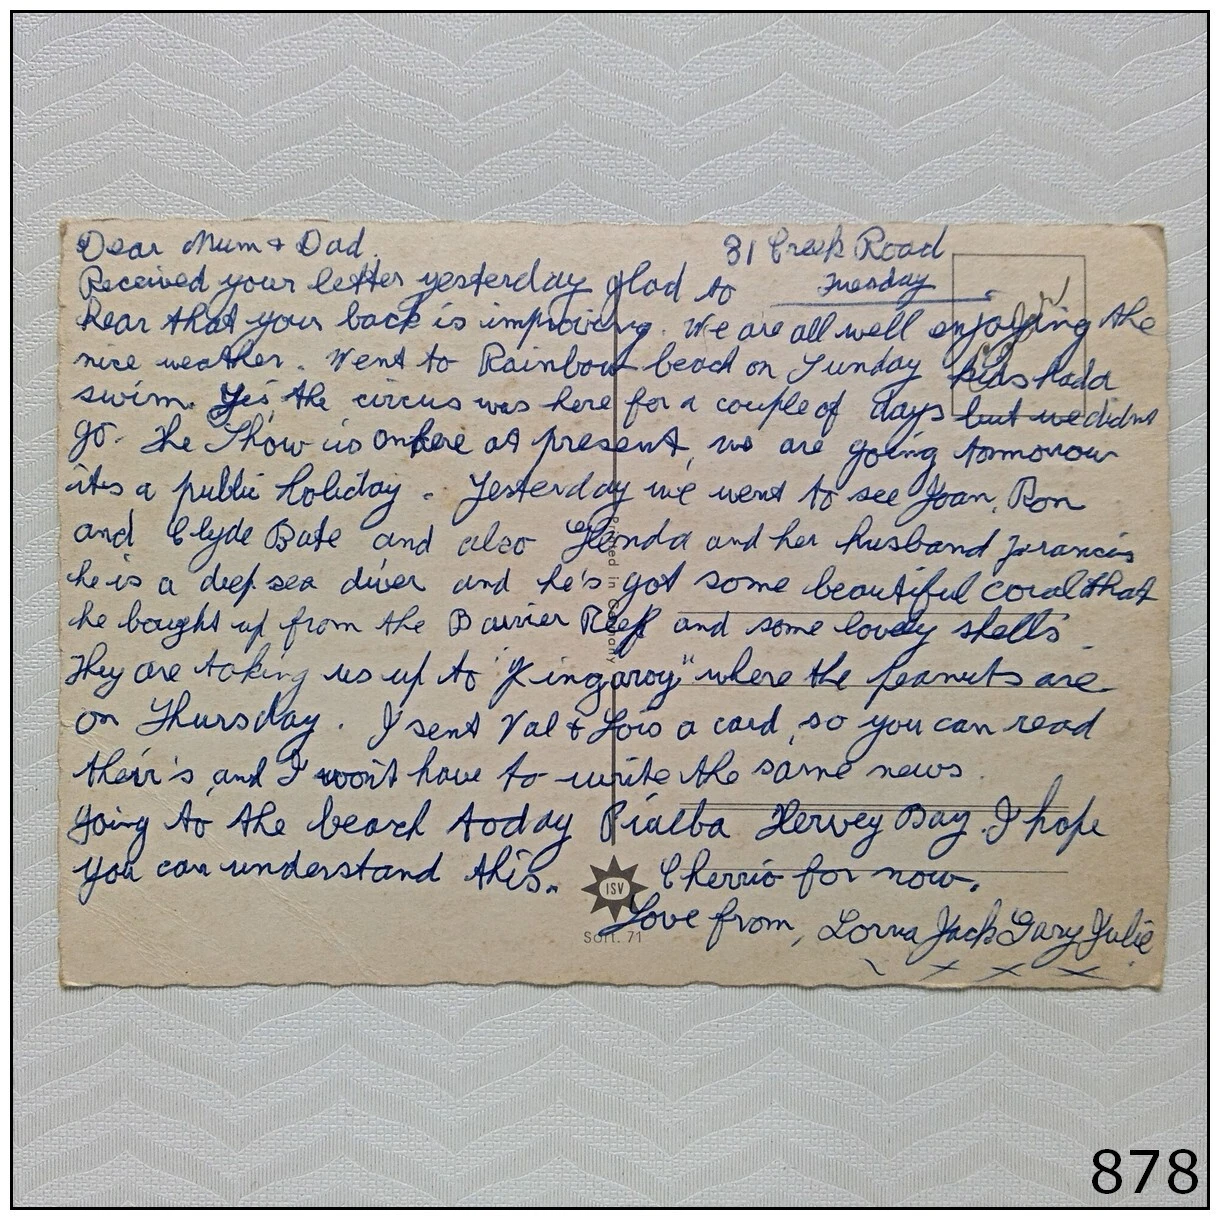 Dear Mum & Dad,
81 Creek Road
Tuesday
Received your letter yesterday glad to
hear that your back is improving. We are all well enjoying the
nice weather. Went to Rainbow beach on Sunday kids had a
swim. Yes, the circus was here for a couple of days but we didnt
go. The Show is on here at present, we are going tommorow
its a public holiday. Yesterday we went to see Joan, Ron
and Clyde Bate and also Glenda and her husband Francis
he is a deep sea diver and he's got some beautiful coral that
he bought up from the Barrier Reef and some lovely shells
They are taking us up to "Kingaroy" where the peanuts are
on Thursday. I sent Val & Lois a card, so you can read
their's, and I won't have to write the same news.
Going to the beach today Pialba Hervey Bay. I hope
you can understand this.
Cherrio for now.
Love from, Lorna Jack Gary Julie
x x x
Printed in Germany
ISV
Sort. 71
878